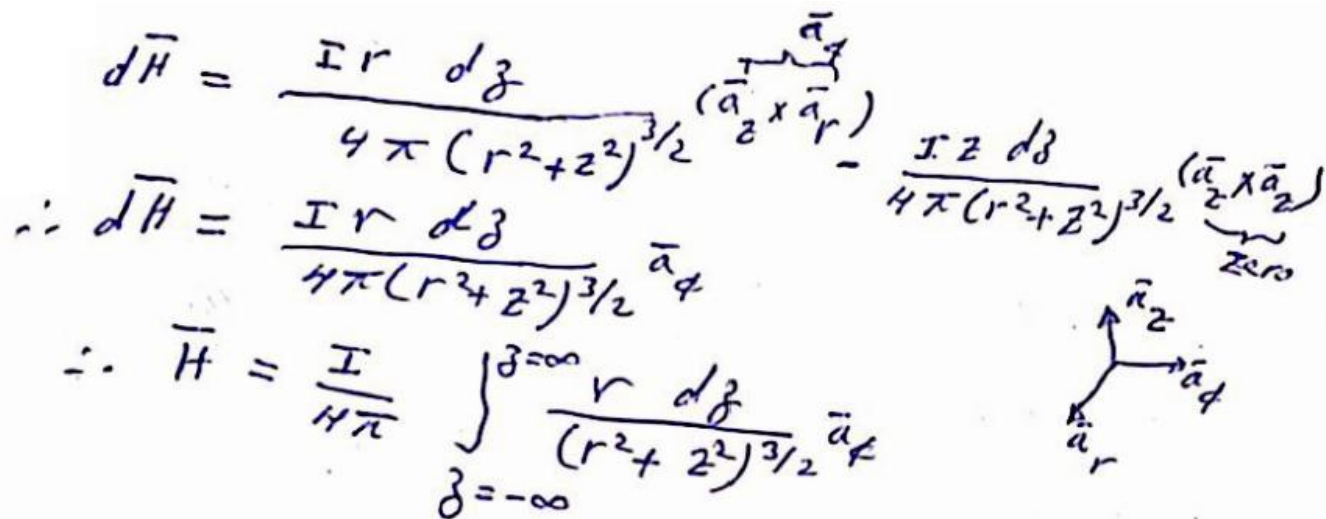 dH̄ = I r dz / 4π(r²+z²)^3/2 (ā_z × ā_r) - I z dz / 4π(r²+z²)^3/2 (ā_z × ā_z)
ā_φ
zero
∴ dH̄ = I r dz / 4π(r²+z²)^3/2 ā_φ
∴ H̄ = I/4π ∫_{z=-∞}^{z=∞} r dz / (r²+z²)^3/2 ā_φ
ā_z
ā_φ
ā_r